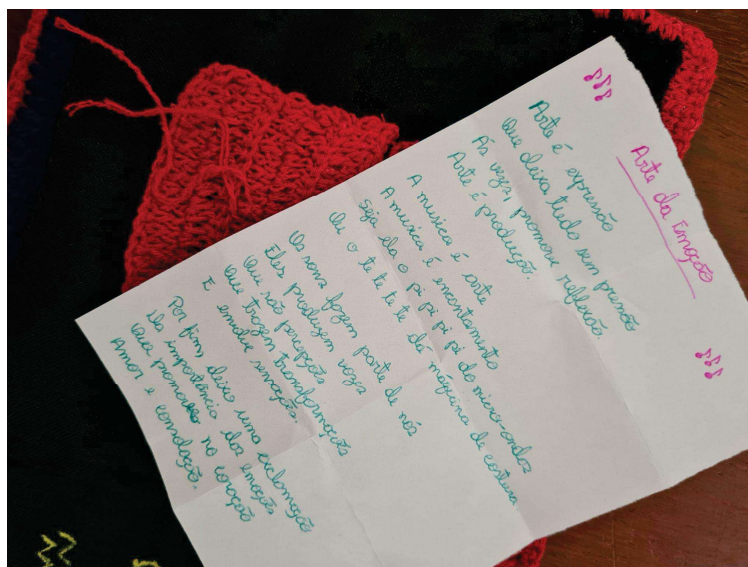 Arte da Emoção
Arte é expressão
Que deixa tudo sem pressão
Às vezes, promove reflexão.
Arte é produção.
A musica é arte
A musica é encantamento
Seja ela o pi pi pi pi do micro-ondas
Ou o te te te te da maquina de costura
Os sons fazem parte de nós
Eles produzem vozes
Que são percepções
Que trazem transformações
E envolve sensações.
Por fim, deixo uma exclamação
Da importância das emoções
Que promove no coração
Amor e consolação.